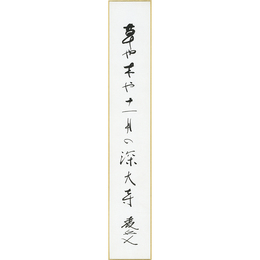 草や木や十一月の深大寺